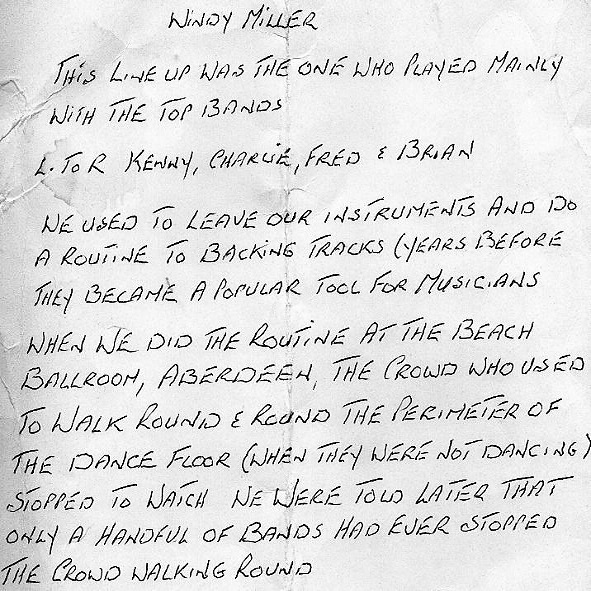 WINDY MILLER
THIS LINE UP WAS THE ONE WHO PLAYED MAINLY
WITH THE TOP BANDS
L. TO R KENNY, CHARLIE, FRED & BRIAN
WE USED TO LEAVE OUR INSTRUMENTS AND DO
A ROUTINE TO BACKING TRACKS (YEARS BEFORE
THEY BECAME A POPULAR TOOL FOR MUSICIANS
WHEN WE DID THE ROUTINE AT THE BEACH
BALLROOM, ABERDEEN, THE CROWD WHO USED
TO WALK ROUND & ROUND THE PERIMETER OF
THE DANCE FLOOR (WHEN THEY WERE NOT DANCING)
STOPPED TO WATCH WE WERE TOLD LATER THAT
ONLY A HANDFUL OF BANDS HAD EVER STOPPED
THE CROWD WALKING ROUND